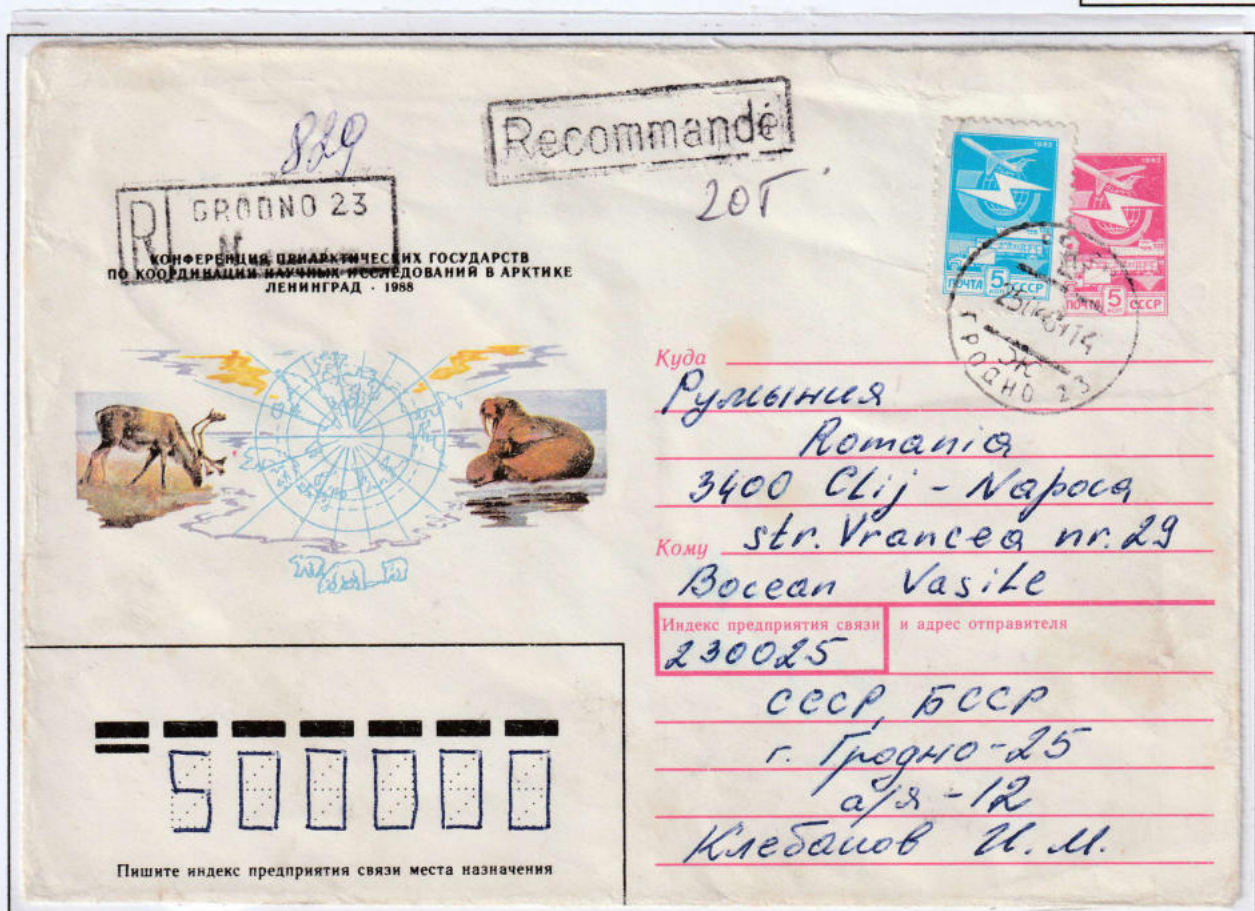 829
Recommandé
20г
R GRODNO 23
N
КОНФЕРЕНЦИЯ ПРИАРКТИЧЕСКИХ ГОСУДАРСТВ
ПО КООРДИНАЦИИ НАУЧНЫХ ИССЛЕДОВАНИЙ В АРКТИКЕ
ЛЕНИНГРАД · 1988
1982
ПОЧТА 5 КОП СССР
1982
ПОЧТА 5 КОП СССР
ГРОДНО 23
Куда
Румыния
Romania
3400 CLij - Napoca
Кому str. Vrancea nr. 29
Bocean Vasile
Индекс предприятия связи и адрес отправителя
230025
СССР, БССР
г. Гродно-25
а/я-12
Клебанов И. М.
500000
Пишите индекс предприятия связи места назначения